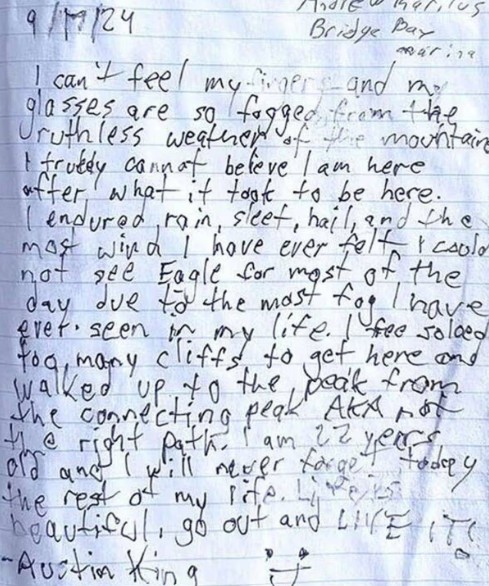 9/17/24
Bridge Bay
marina
I can't feel my fingers and my
glasses are so fogged from the
ruthless weather of the mountain
I truely cannot beleve I am here
after what it took to be here.
I endured rain, sleet, hail, and the
most wind I have ever felt I could
not see Eagle for most of the
day due to the most fog I have
ever seen in my life. I free soloed
too many cliffs to get here and
walked up to the peak from
the connecting peak AKA not
the right path. I am 22 years
old and I will never forget today
the rest of my life. Life is
beautiful, go out and LIVE IT!
-Austin King